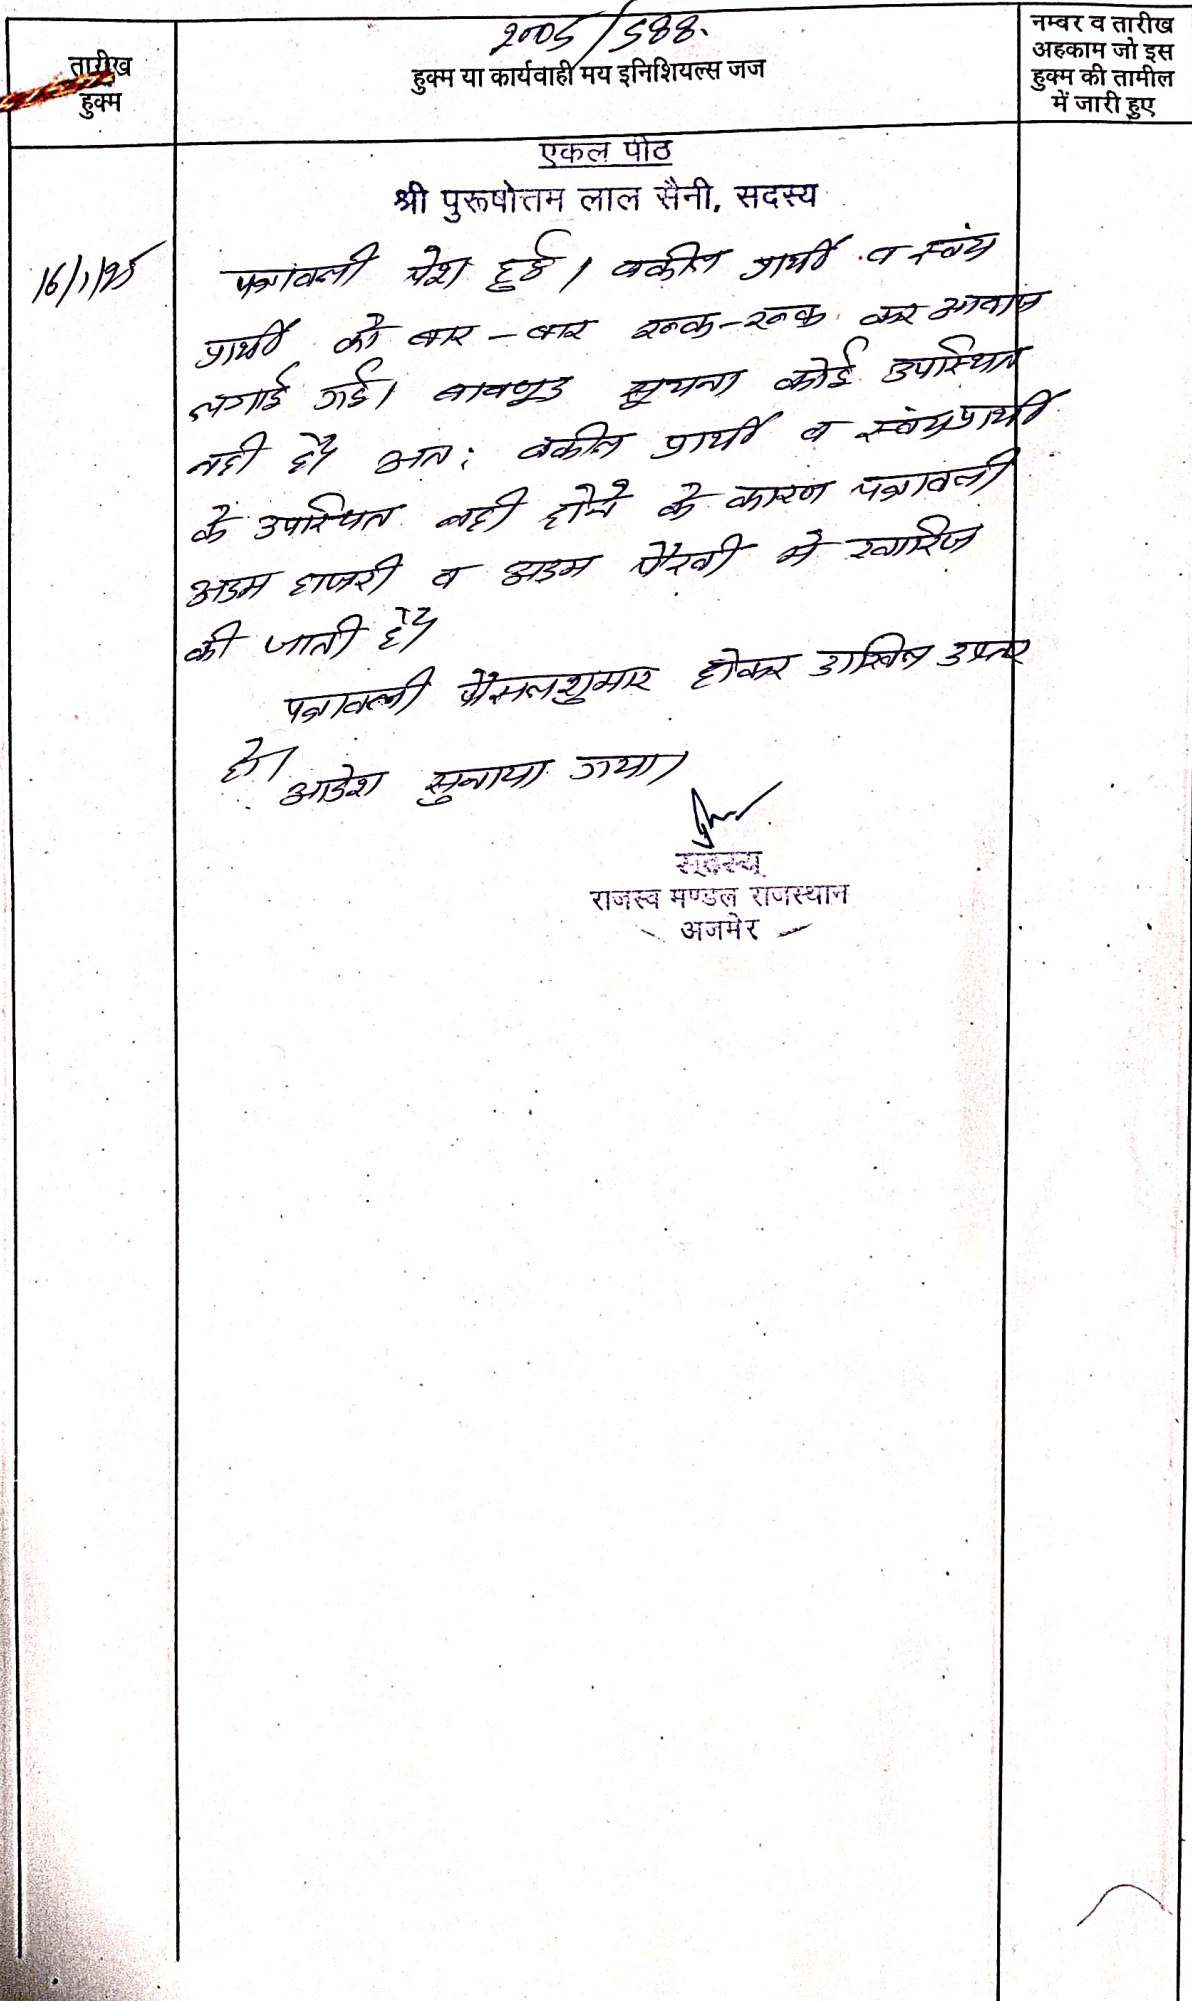 2005/588.
तारीख
हुक्म
हुक्म या कार्यवाही मय इनिशियल्स जज
नम्बर व तारीख
अहकाम जो इस
हुक्म की तामील
में जारी हुए
एकल पीठ
श्री पुरूषोत्तम लाल सैनी, सदस्य
16/1/25
पत्रावली पेश हुई। वकील प्रार्थी व स्वंय
प्रार्थी को बार-बार रूक-रूक कर आवाज
लगाई गई। बावजूद सूचना कोई उपस्थित
नही है। अतः वकील प्रार्थी व स्वंय प्रार्थी
के उपस्थित नही होने के कारण पत्रावली
अदम हाजरी व अदम पैरवी मे खारिज
की जाती है।
पत्रावली फैसलशुमार होकर दाखिल दफ्तर
हो।
आदेश सुनाया गया।
सदस्य
राजस्व मण्डल राजस्थान
अजमेर